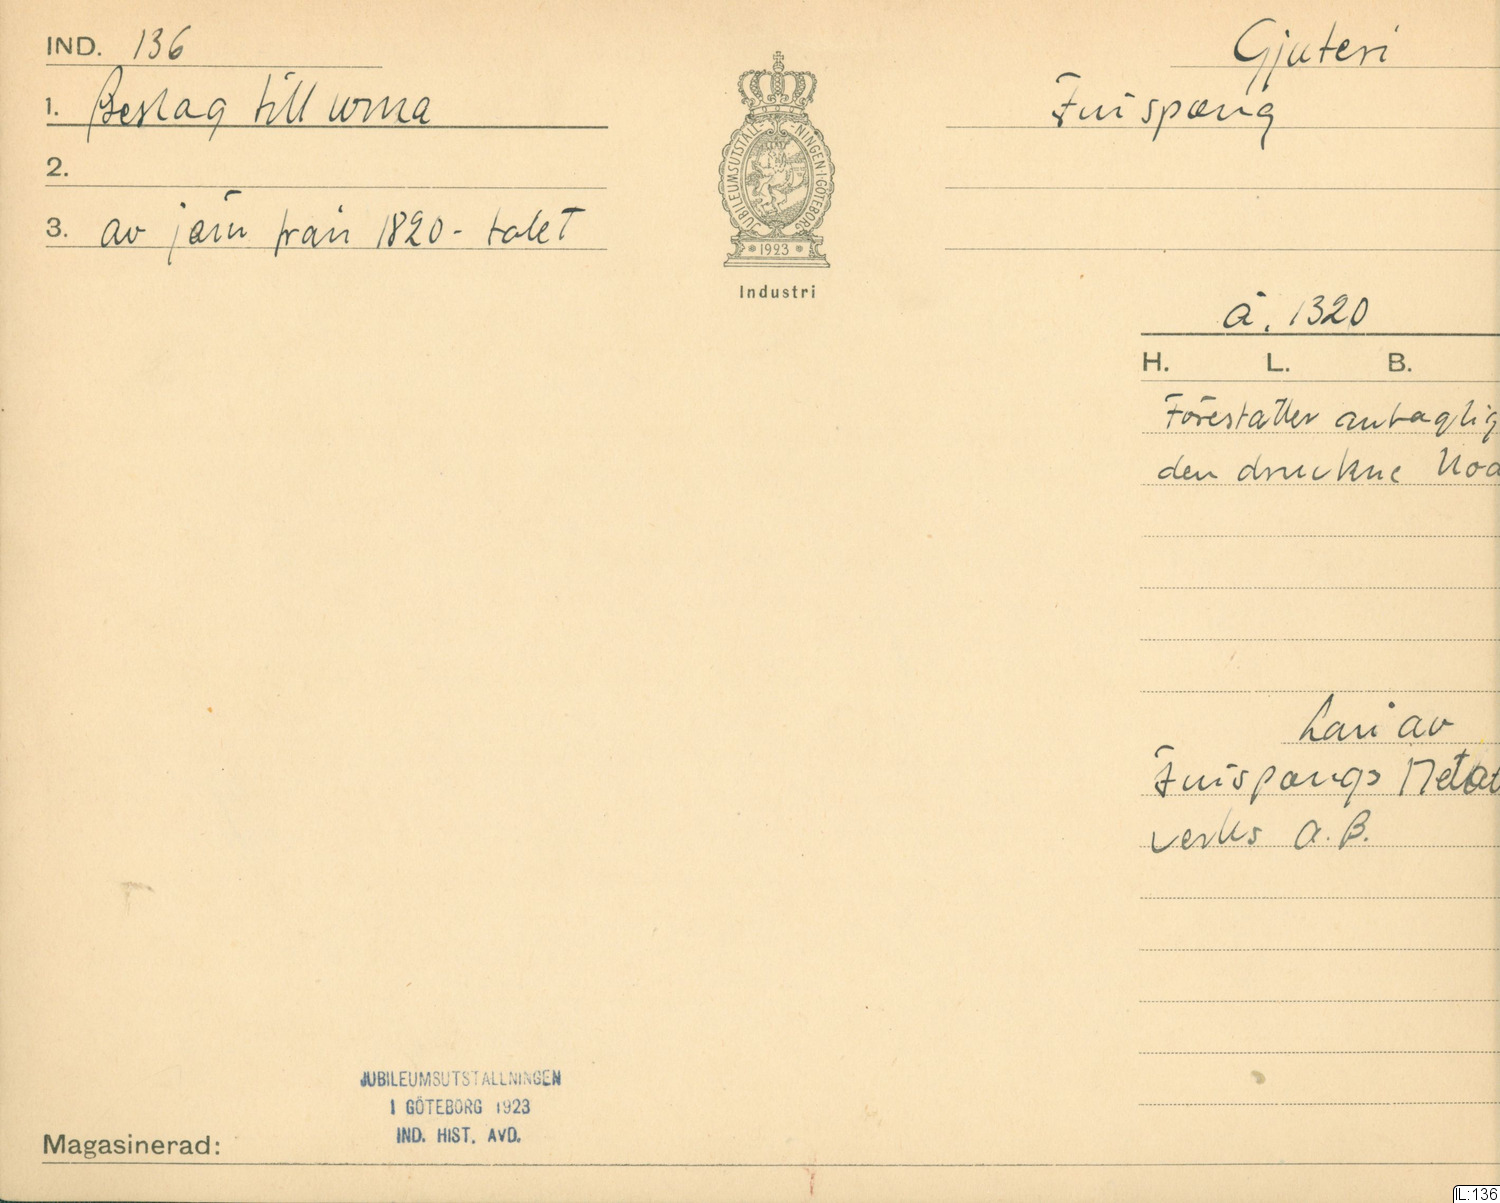 IND. 136
1. Beslag till urna
2.
3. av järn från 1820-talet
JUBILEUMSUTSTÄLLNINGEN I GÖTEBORG
1923
Industri
Gjuteri
Finspång
a. 1320
H. L. B.
Föreställer antaglig
den druckne Noa
Lån av
Finspångs Metal
verks A.B.
JUBILEUMSUTSTÄLLNINGEN
I GÖTEBORG 1923
IND. HIST. AVD.
Magasinerad:
IL:136